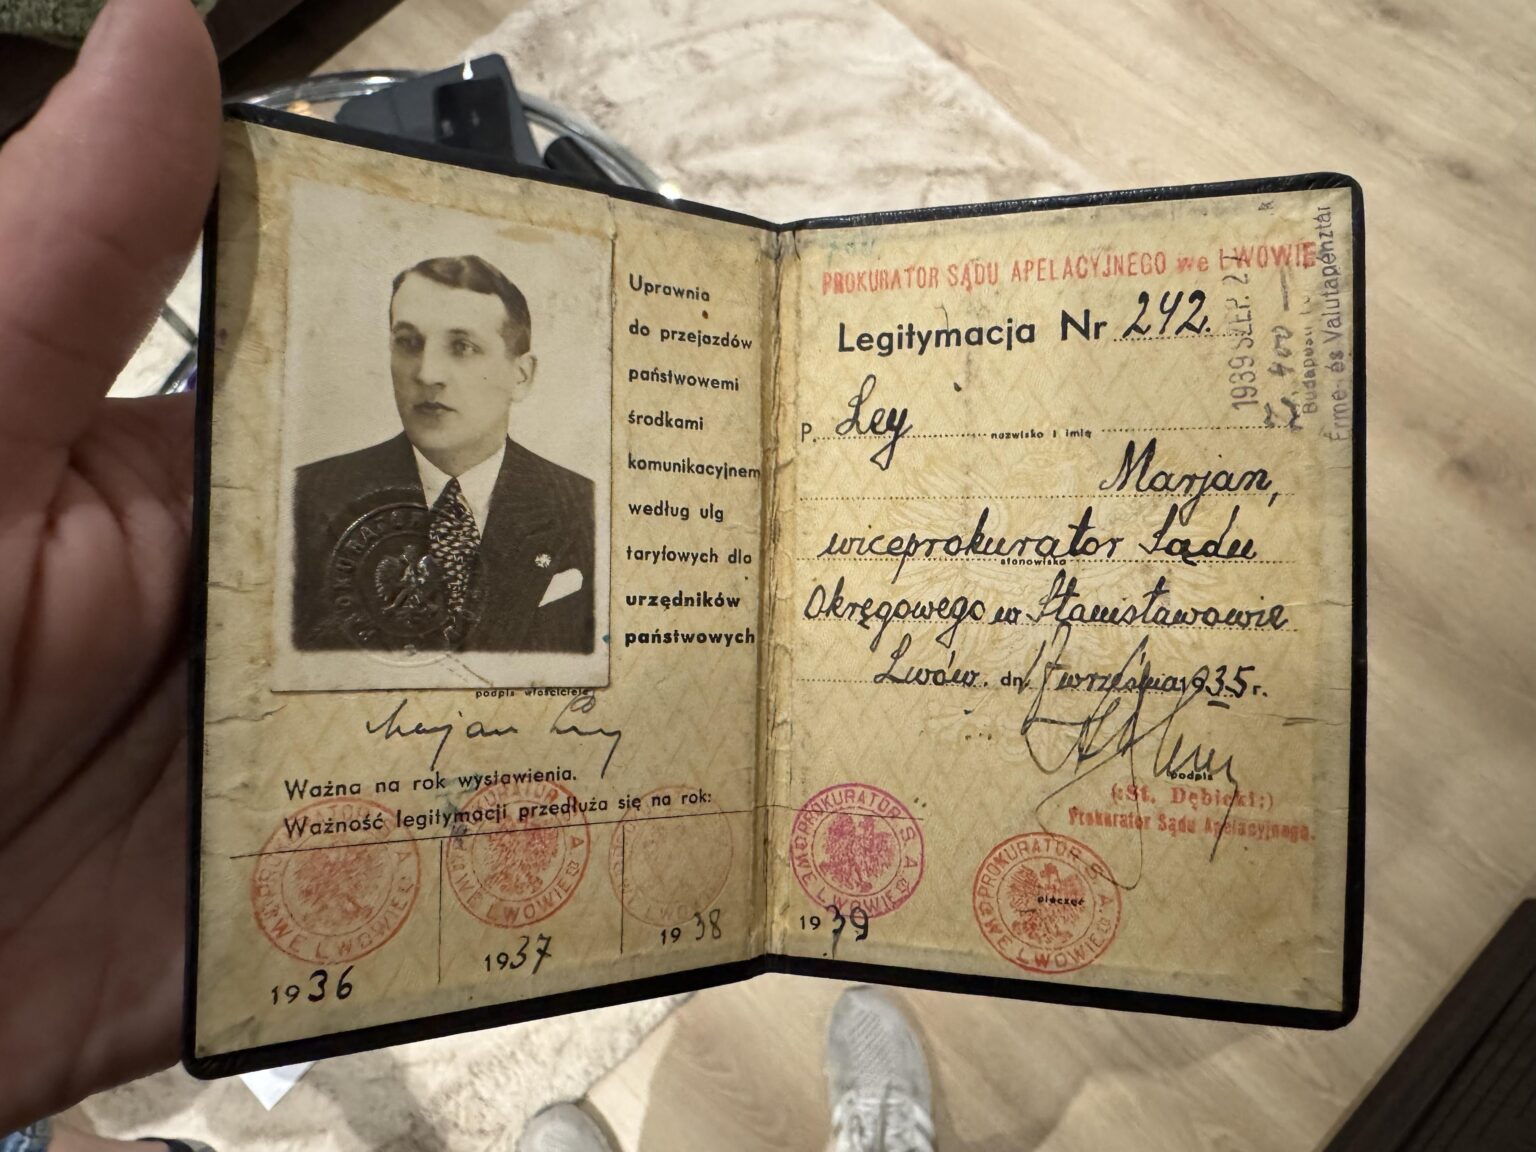 Uprawnia
do przejazdów
państwowemi
środkami
komunikacyjnem
według ulg
taryfowych dla
urzędników
państwowych
podpis właściciela
Marjan Ley
Ważna na rok wystawienia.
Ważność legitymacji przedłuża się na rok:
1936
1937
1938
PROKURATOR SĄDU APELACYJNEGO we LWOWIE
Legitymacja Nr 242.
P. Ley
nazwisko i imię
Marjan,
wiceprokurator Sądu
stanowisko
Okręgowego w Stanisławowie
Lwów. dn. września 1935 r.
podpis
(:St. Dębicki:)
Prokurator Sądu Apelacyjnego.
PROKURATOR S. A. WE LWOWIE
1939
PROKURATOR S. A. WE LWOWIE
pieczęć
1939 SZEP. 2
400
Budapesti
Érme- és Valutapénztár